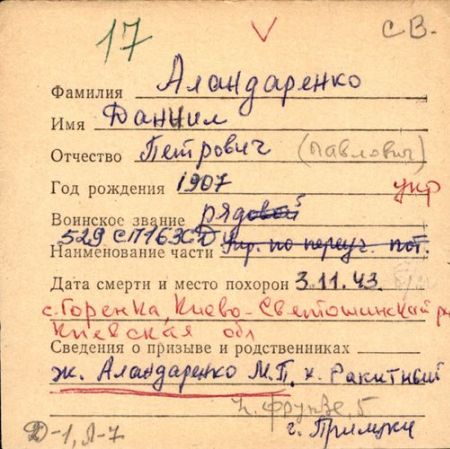 17 V СВ.
Фамилия Аландаренко
Имя Даниил
Отчество Петрович (Павлович)
Год рождения 1907 укр
Воинское звание рядовой
529 СП 163 СД Упр. по переуч. пот.
Наименование части
Дата смерти и место похорон 3.11.43.
с. Горенка, Киево-Святошинский рн
Киевская обл
Сведения о призыве и родственниках
ж. Аландаренко М.П. х. Ракитный
фрунзе, 5
Д-1, Л-7 г. Прилуки